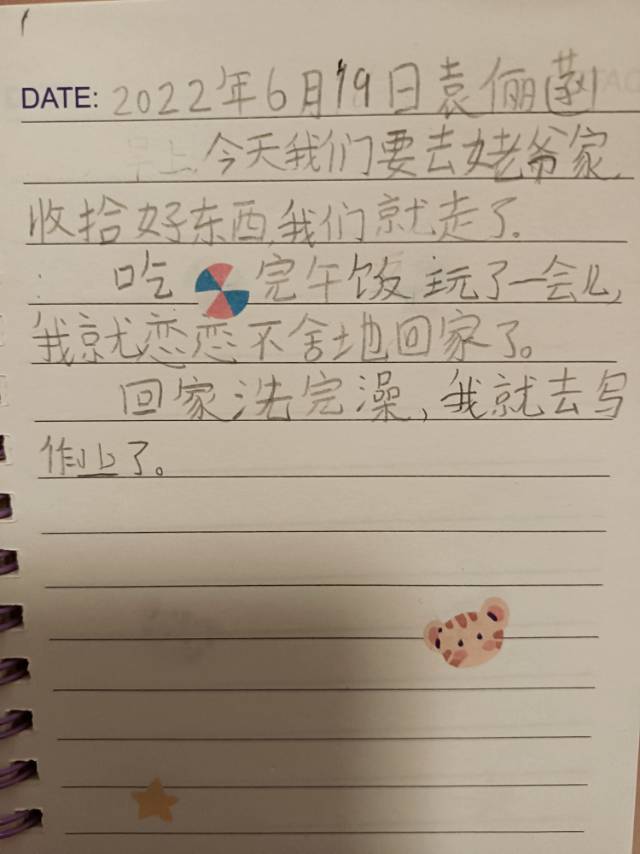 DATE: 2022年6月19日袁俪
今天我们要去姥爷家,
收拾好东西,我们就走了.
吃完午饭玩了一会儿,
我就恋恋不舍地回家了。
回家洗完澡,我就去写
作业了。